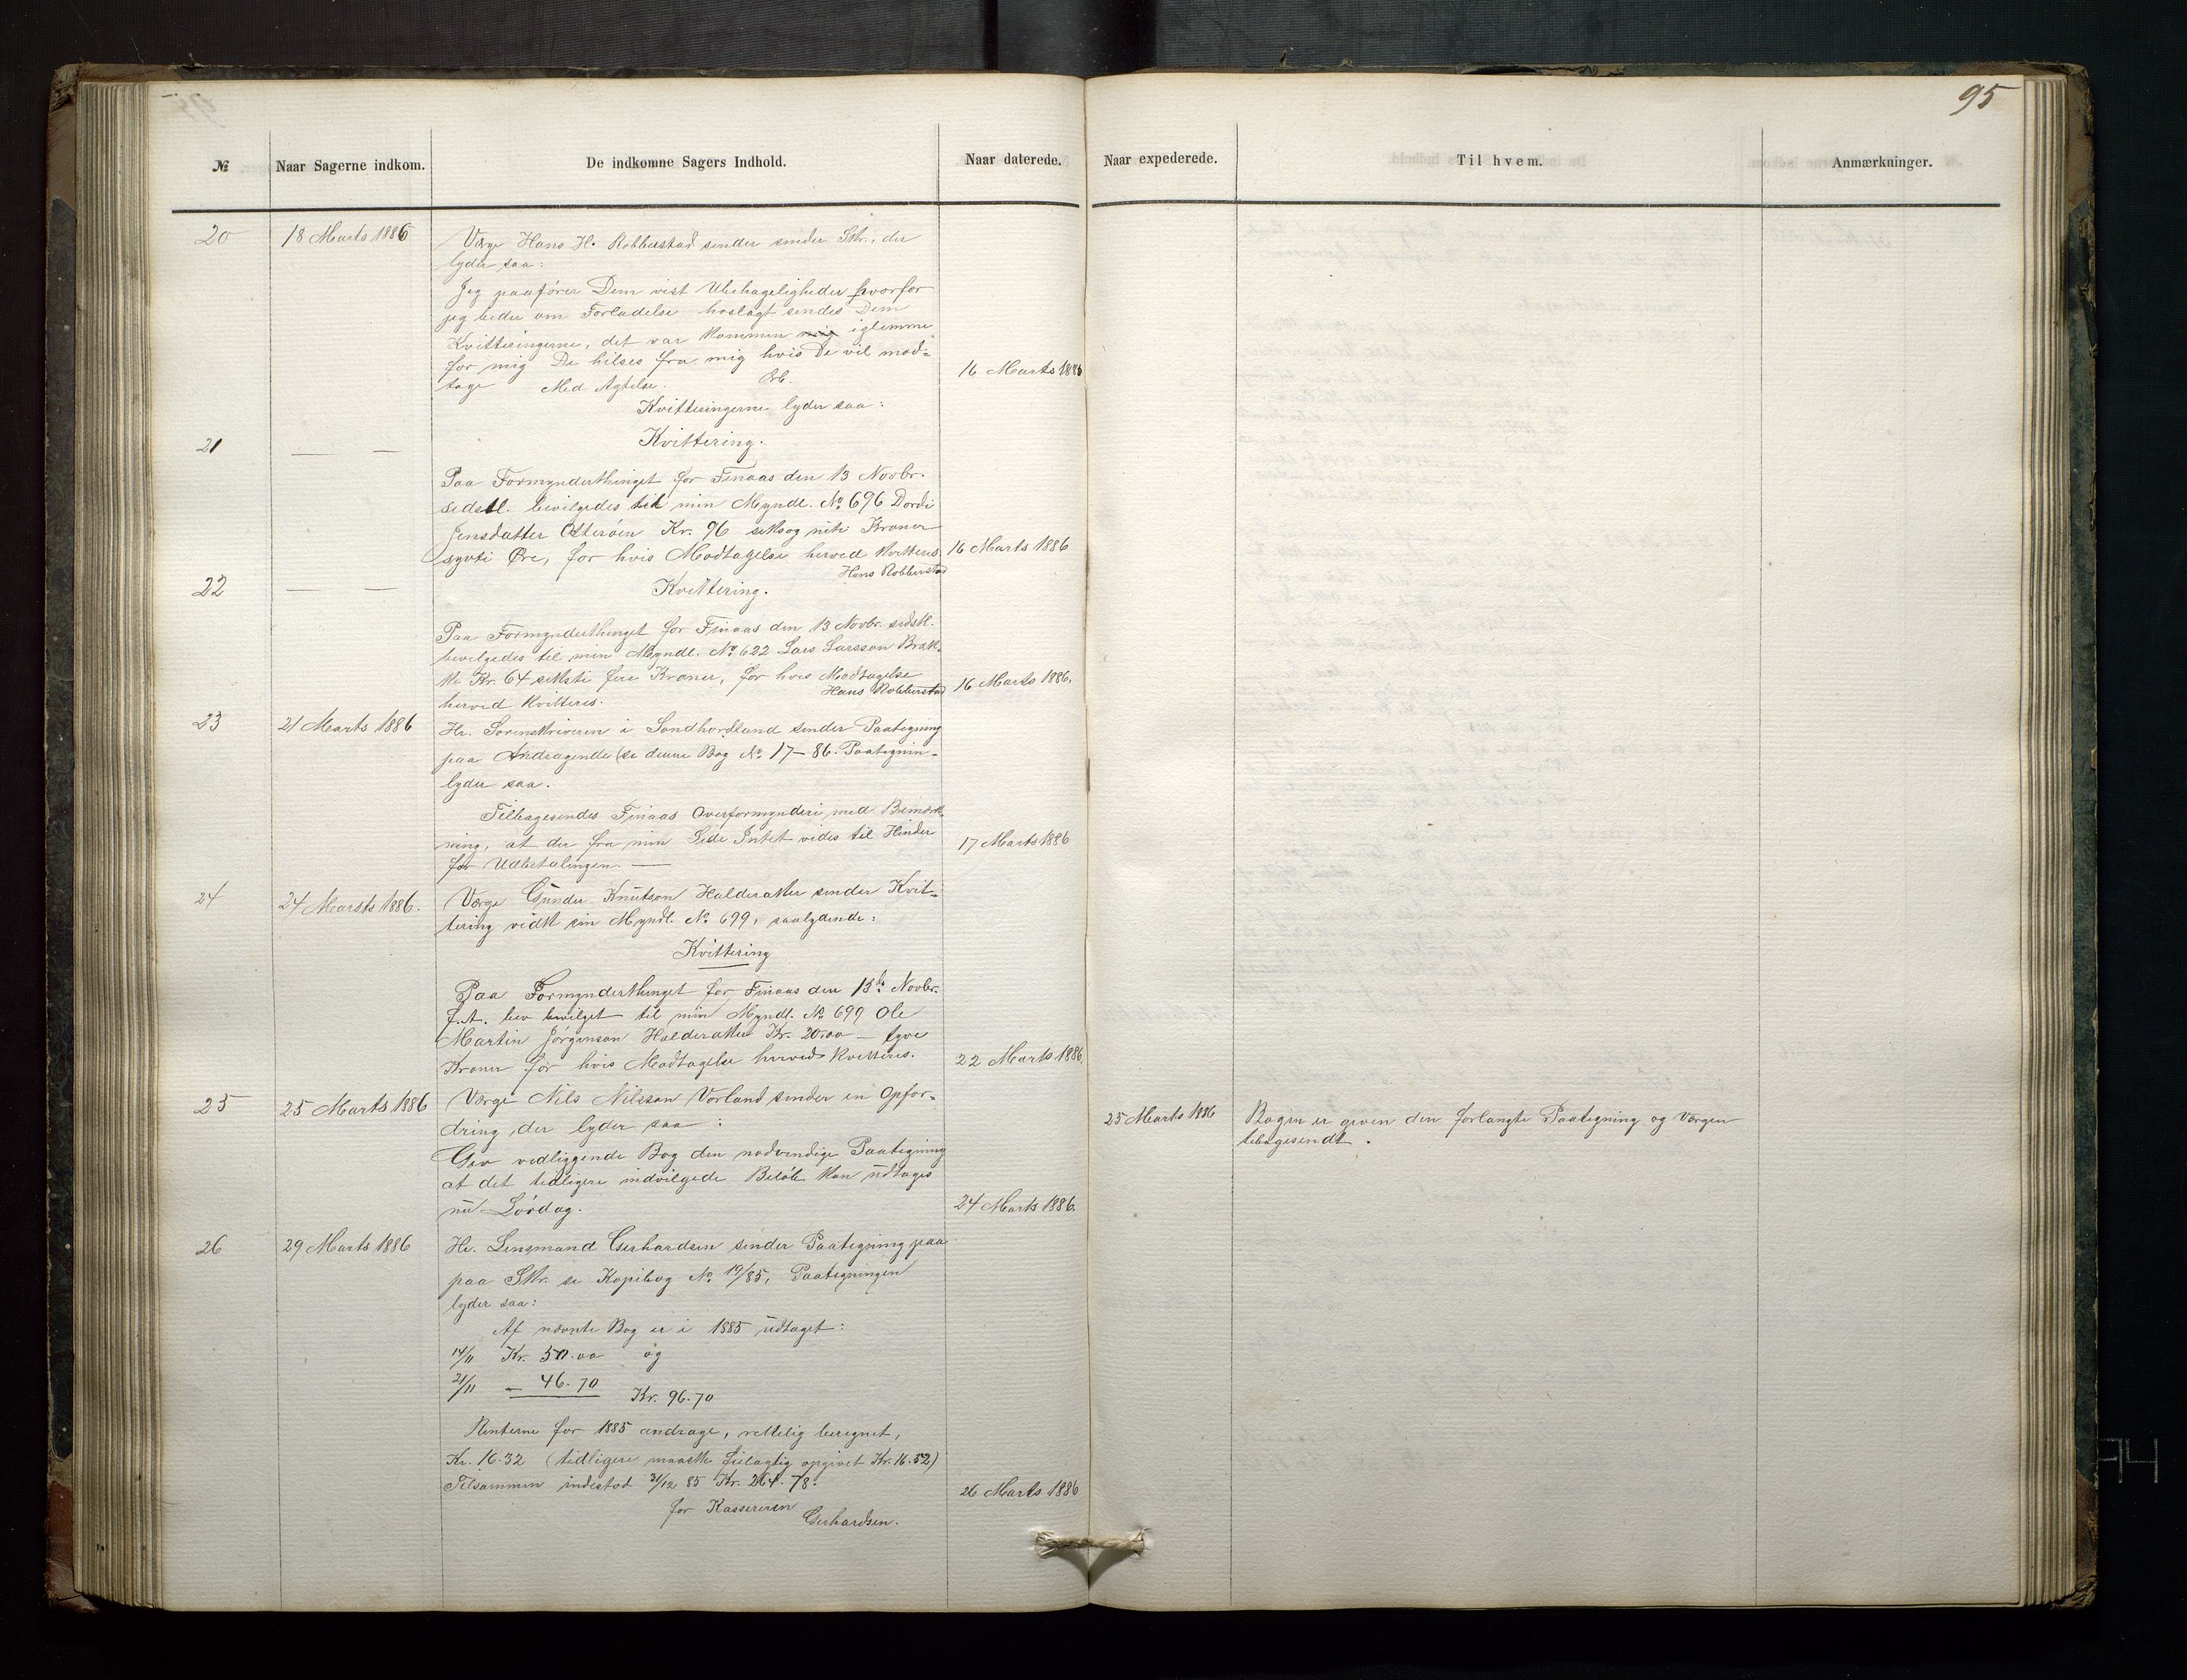 95
№ Naar Sagerne indkom. De indkomne Sagers Indhold. Naar daterede. Naar expederede. Til hvem. Anmærkninger.
20 18 Marts 1886 Værge Hans H. Robberstad sender sender Skr., der
lyder saa:
Jeg paafører Dem vist Ubehageligheder hvorfor
jeg beder om Forladelse hoslagt sendes Dem
Kvitteringerne, det var kommen mig iglemme
for mig De hilses fra mig hvis De vil mod-
tage Med Agtelse. 16 Marts 1886
Kvitteringerne lyder saa:
21 — — Kvittering.
Paa Formynderthinget for Finaas den 13 Novbr.
sidstl. bevilgedes til min Myndl. № 696 Dordi
Jensdatter Otterøen Kr. 96 seksog niti Kroner
sytti Øre, for hvis Modtagelse herved kvitteres 16 Marts 1886
Hans Robberstad
22 — — Kvittering.
Paa Formynderthinget for Finaas den 13 Novbr. sidstl.
bevilgedes til min Myndl. № 622 Lars Larsson Bræk-
ke Kr. 64 seksti fire Kroner, for hvis Modtagelse
herved kvitteres. Hans Robberstad 16 Marts 1886.
23 21 Marts 1886 Hr. Sorenskriveren i Søndhordland sender Paategning
paa Andragende (se denne Bog № 17-86. Paategnin-
lyder saa.
Tilbagesendes Finaas Overformynderi med Bemærk-
ning, at der fra min Side Intet vides til Hinder
for Udbetalingen. — 17 Marts 1886
24 24 Marsts 1886. Værge Gunder Knutson Halderaker sender Kvit-
tering vidk sin Myndl. № 699, saalydende:
Kvittering
Paa Formynderthinget for Finaas den 13de Novbr.
f.A. bev bevilget til min Myndl. № 699 Ole
Martin Jørgenson Halderaker Kr. 20.00 — tyve
Kroner for hvis Modtagelse herved kvitteres. 22 Marts 1886.
25 25 Marts 1886 Værge Nils Nilsson Vorland sender en Opfor-
dring, der lyder saa:
Giv vedliggende Bog den nødvendige Paategning
at det tidligere indvilgede Beløb kan udtages
nu Lørdag. 24 Marts 1886.
25 Marts 1886 Bogen er given den forlangte Paategning og Værgen
tilbagesendt.
26 29 Marts 1886 Hr. Lensmand Gerhardsen sender Paategning paa
paa Skr. se Kopibog № 19/85, Paategningen
lyder saa:
Af nævnte Bog er i 1885 udtaget:
14/11 Kr. 50.00 og
21/11 - 46.70 Kr. 96.70
Renterne for 1885 andrage, rettelig beregnet,
Kr. 16.32 (tidligere maaske feilagtig opgivet Kr. 16.52)
Tilsammen indestod 31/12 85 Kr. 264.78.
for Kassereren 26 Marts 1886
Gerhardsen.